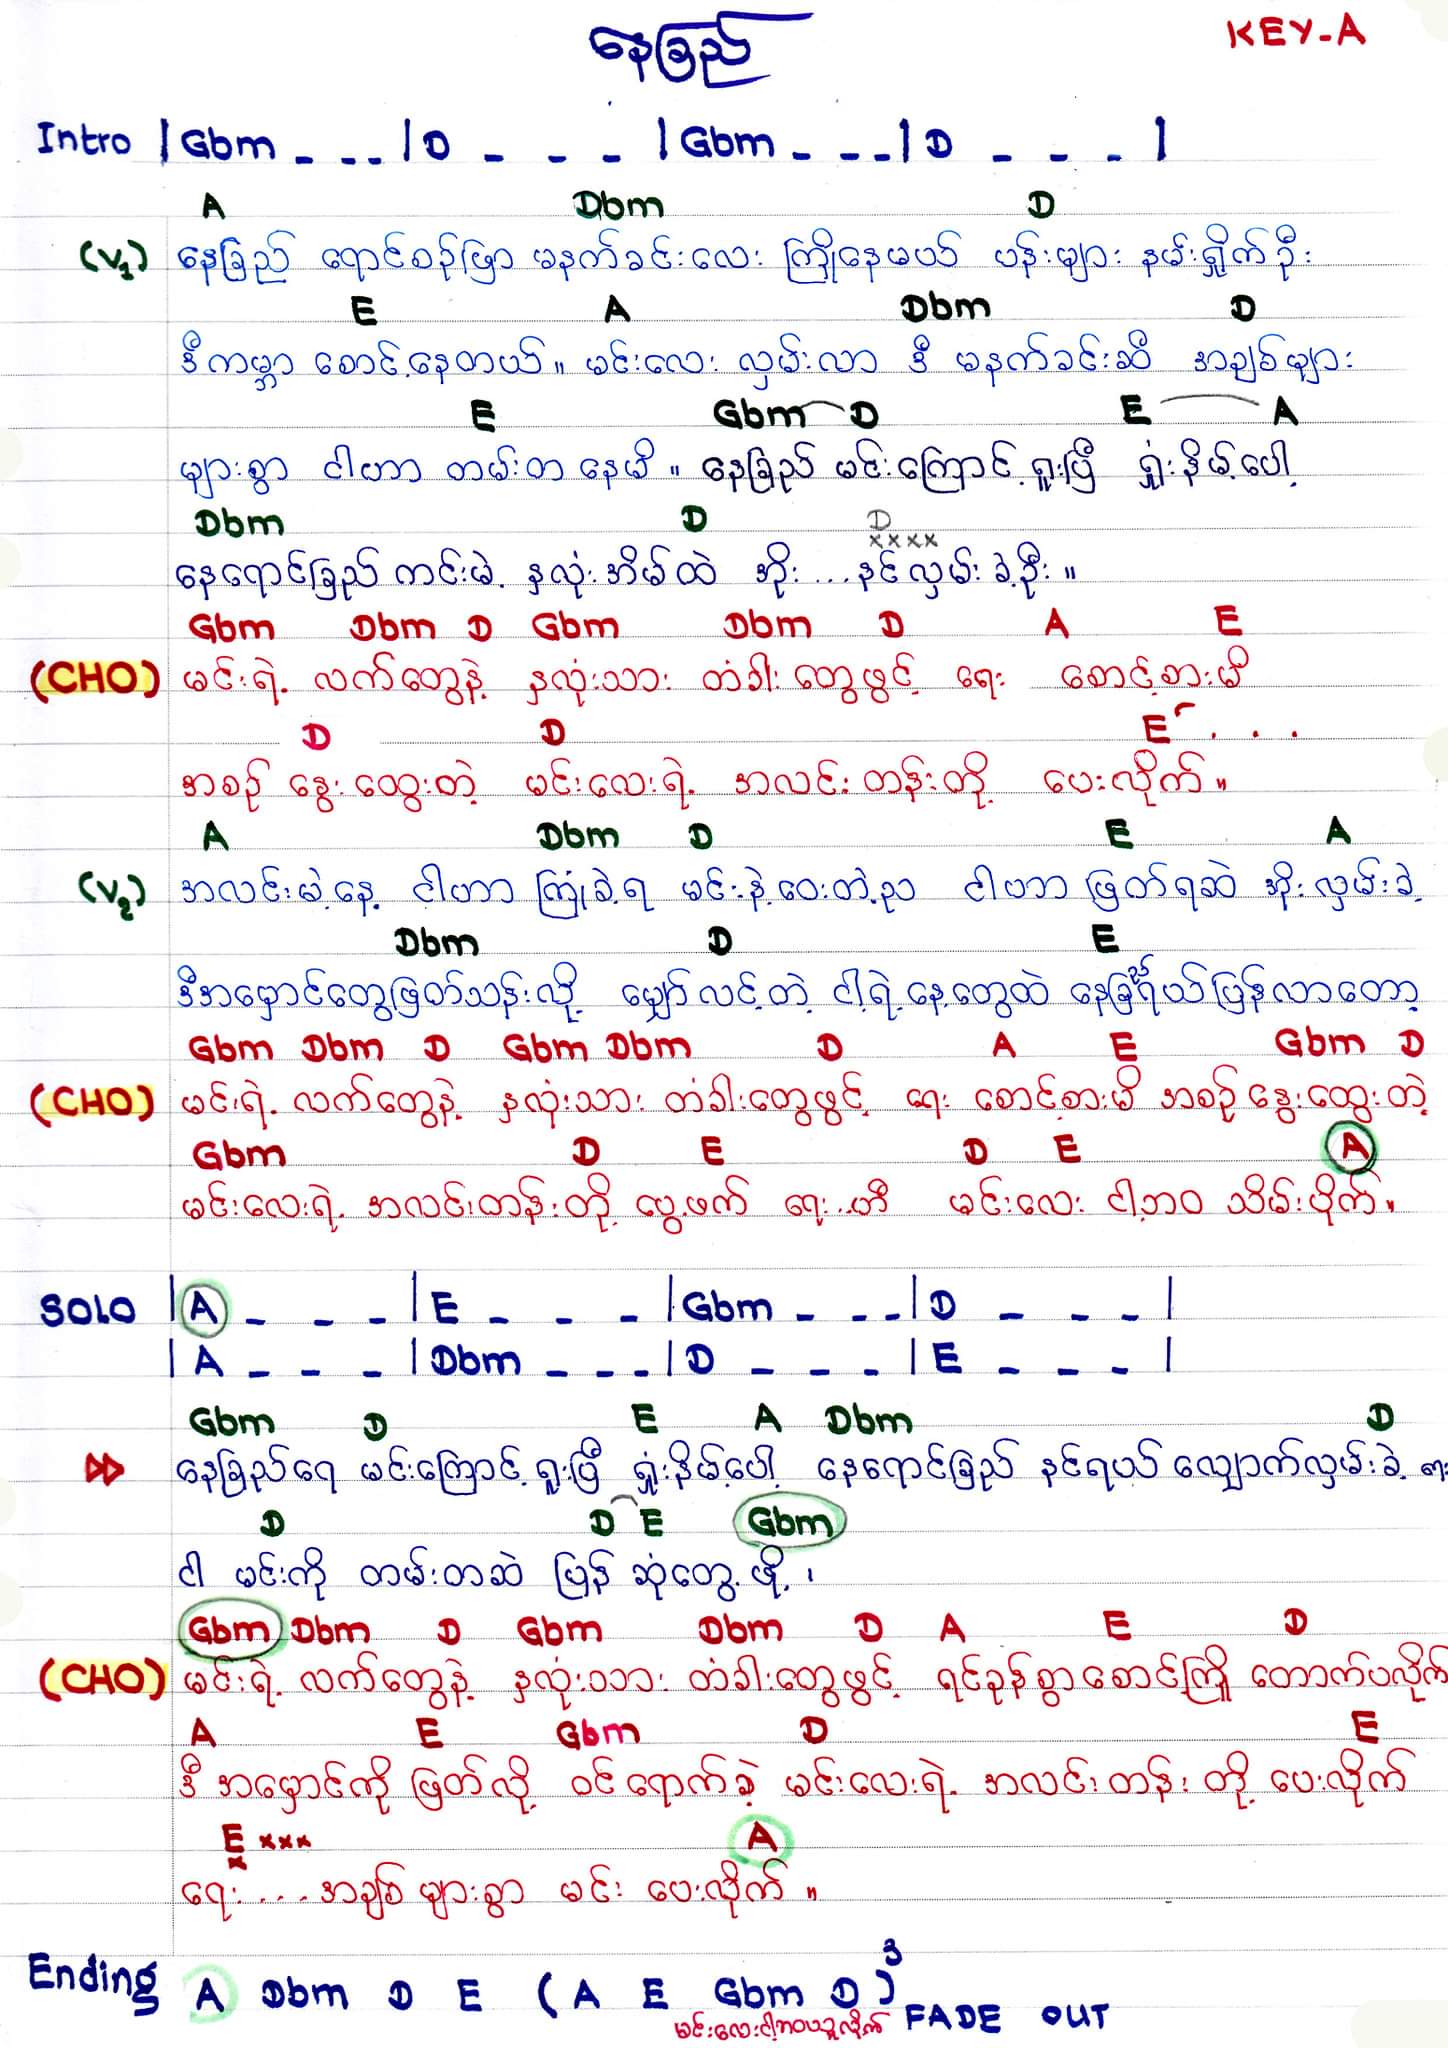 နေခြည်
KEY-A
Intro | Gbm _ _ _ | D _ _ _ | Gbm _ _ _ | D _ _ _ |
A Dbm D
(V1) နေခြည် ရောင်စဉ်ဖြာ မနက်ခင်းလေး ကြိုနေမယ် ပန်းများ နမ်းရှိုက်ဦး
E A Dbm D
ဒီကမ္ဘာ စောင့်နေတယ်။ မင်းလေး လှမ်းလာ ဒီ မနက်ခင်းဆီ အချစ်များ
E Gbm D E A
များစွာ ငါဟာ တမ်းတနေမိ။ နေခြည် မင်းကြောင့် ရူးပြီ ရှုံးနိမ့်ပေါ့
Dbm D D xxxx
နေရောင်ခြည် ကင်းမဲ့ နှလုံးအိမ်ထဲ အိုး ... နင်လှမ်းခဲ့ဦး။
Gbm Dbm D Gbm Dbm D A E
(CHO) မင်းရဲ့ လက်တွေနဲ့ နှလုံးသား တံခါးတွေဖွင့် ရေး စောင့်စားမိ
D D E . . .
အစဉ် နွေးထွေးတဲ့ မင်းလေးရဲ့ အလင်းတန်းတို့ ပေးလိုက်။
A Dbm D E A
(V2) အလင်းမဲ့နေ့ ငါဟာ ကြုံခဲ့ရ မင်းနဲ့ဝေးတဲ့ည ငါဟာ ဖြတ်ရဆဲ အိုး လှမ်းခဲ့
Dbm D E
ဒီအမှောင်တွေဖြတ်သန်းလို့ မျှော်လင့်တဲ့ ငါ့ရဲ့နေ့တွေထဲ နေခြည်ရယ်ပြန်လာတော့
Gbm Dbm D Gbm Dbm D A E Gbm D
(CHO) မင်းရဲ့ လက်တွေနဲ့ နှလုံးသား တံခါးတွေဖွင့် ရေး စောင့်စားမိ အစဉ်နွေးထွေးတဲ့
Gbm D E D E A
မင်းလေးရဲ့ အလင်းတန်းတို့ ပွေ့ဖက် ရေး..ဟီ မင်းလေး ငါ့ဘဝ သိမ်းပိုက်။
SOLO | A _ _ _ | E _ _ _ | Gbm _ _ _ | D _ _ _ |
| A _ _ _ | Dbm _ _ _ | D _ _ _ | E _ _ _ |
Gbm D E A Dbm D
နေခြည်ရေ မင်းကြောင့်ရူးပြီ ရှုံးနိမ့်ပေါ့ နေရောင်ခြည် နင်ရယ် လျှောက်လှမ်းခဲ့
D D E Gbm
ငါ မင်းကို တမ်းတဆဲ ပြန်ဆုံတွေ့ဖို့၊
Gbm Dbm D Gbm Dbm D A E D
(CHO) မင်းရဲ့ လက်တွေနဲ့ နှလုံးသား တံခါးတွေဖွင့် ရင်ခုန်စွာစောင့်ကြို တောက်ပလိုက်
A E Gbm D E
ဒီ အမှောင်ကို ဖြတ်လို့ ဝင်ရောက်ခဲ့ မင်းလေးရဲ့ အလင်းတန်းတို့ ပေးလိုက်
E xxx A
ရေး ... အချစ်များစွာ မင်း ပေးလိုက်။
Ending A Dbm D E (A E Gbm D)3 FADE OUT
မင်းလေးငါ့ဘဝယူလိုက်